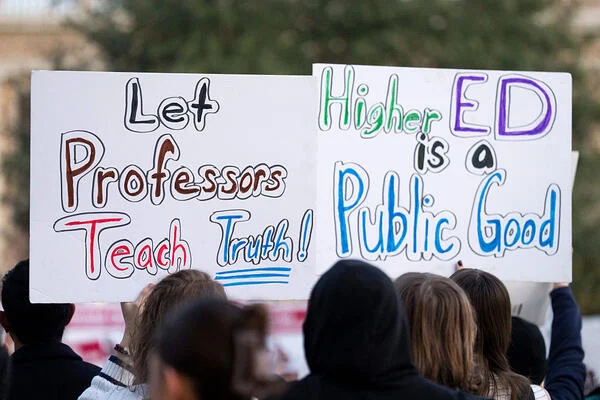 Let
Professors
Teach Truth!
Higher ED
is a
Public Good